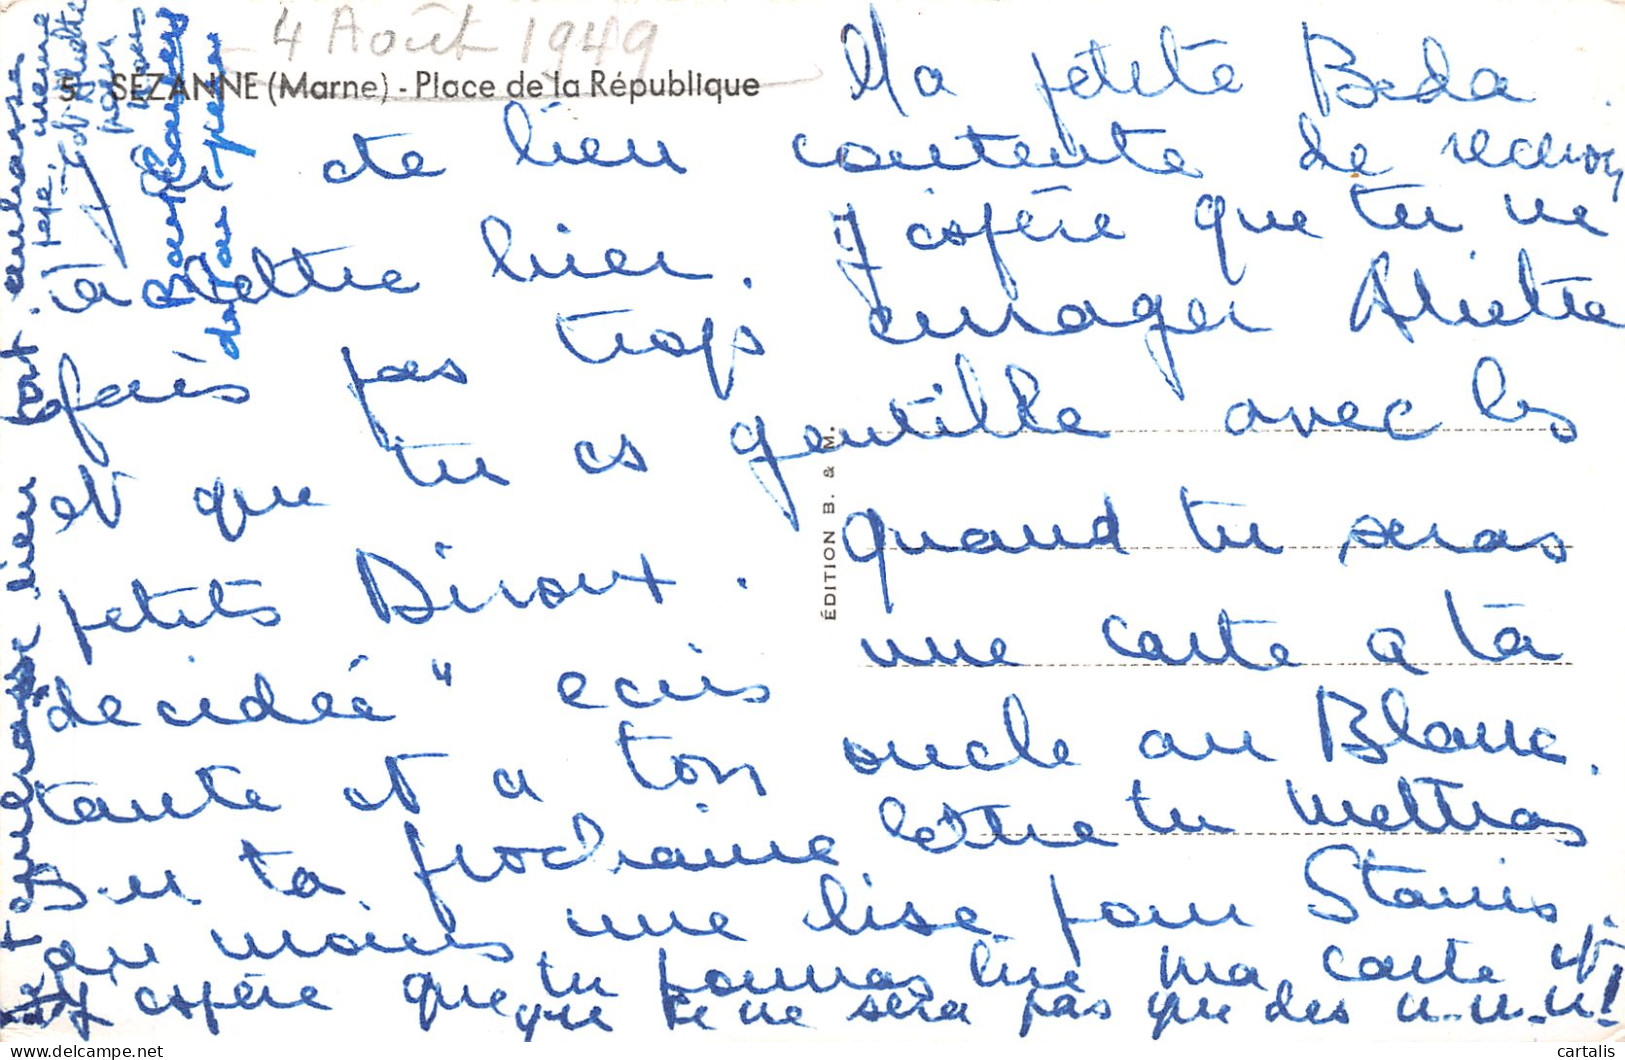 4 Août 1949
5 - SÉZANNE (Marne) - Place de la République
Ma petite Beda.
J'ai été bien contente de recevoir
ta lettre hier. J'espère que tu ne
fais pas trop enrager Aliette
et que tu es gentille avec les
petits Diroux. quand tu seras
décidée" ecris une carte a ta
tante et a ton oncle au Blanc.
Sur ta prochaine lettre tu mettras
au moins une bise pour Stanis.
J'espère que tu pourras lire ma carte et
que ce ne sera pas que des u-u-u!
bien fort. embrasse
pépé, mémé
et Aliette
pour
nous
ÉDITION B. & M.
cartalis